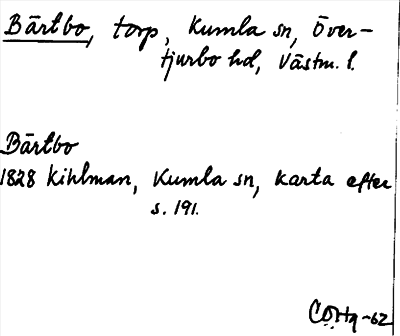 Bärtbo, torp, Kumla sn, Över-
tjurbo hd, Västm. l.
Bärtbo
1828 Kihlman, Kumla sn, karta efter
s. 191.